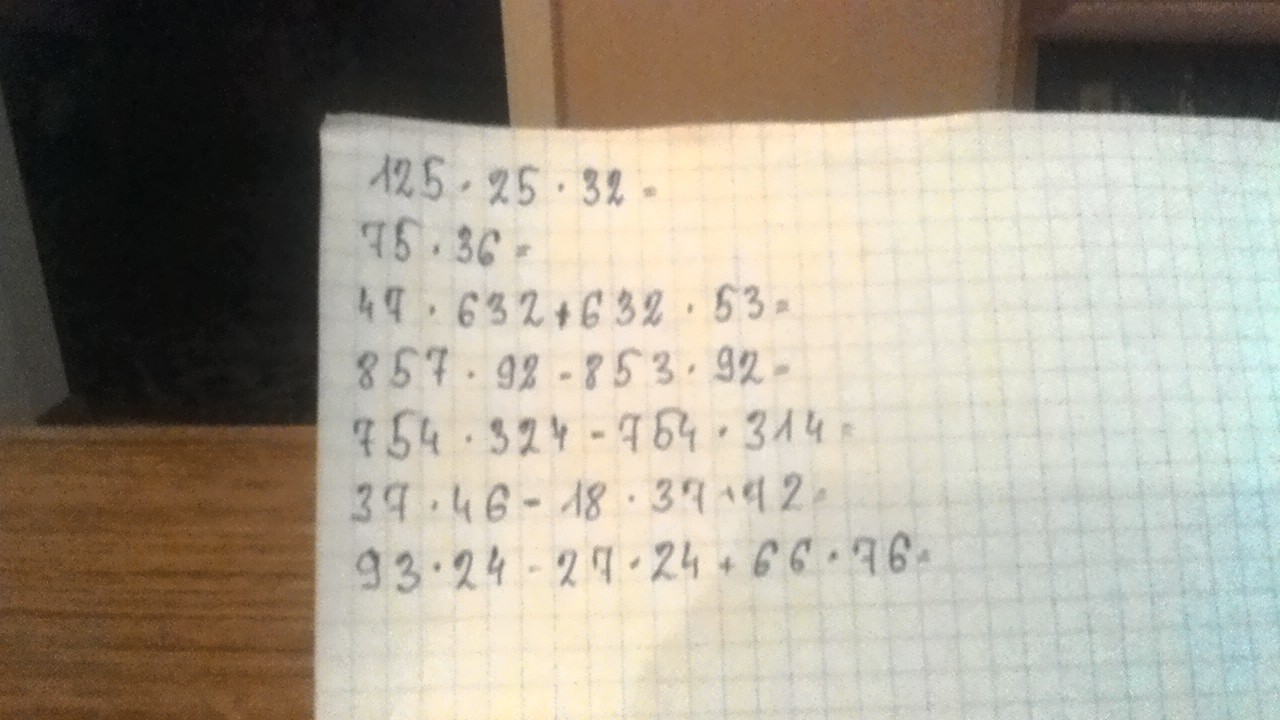 125 · 25 · 32 =
75 · 36 =
47 · 632 + 632 · 53 =
857 · 92 - 853 · 92 =
754 · 324 - 754 · 314 =
37 · 46 - 18 · 37 + 72 =
93 · 24 - 27 · 24 + 66 · 76 =